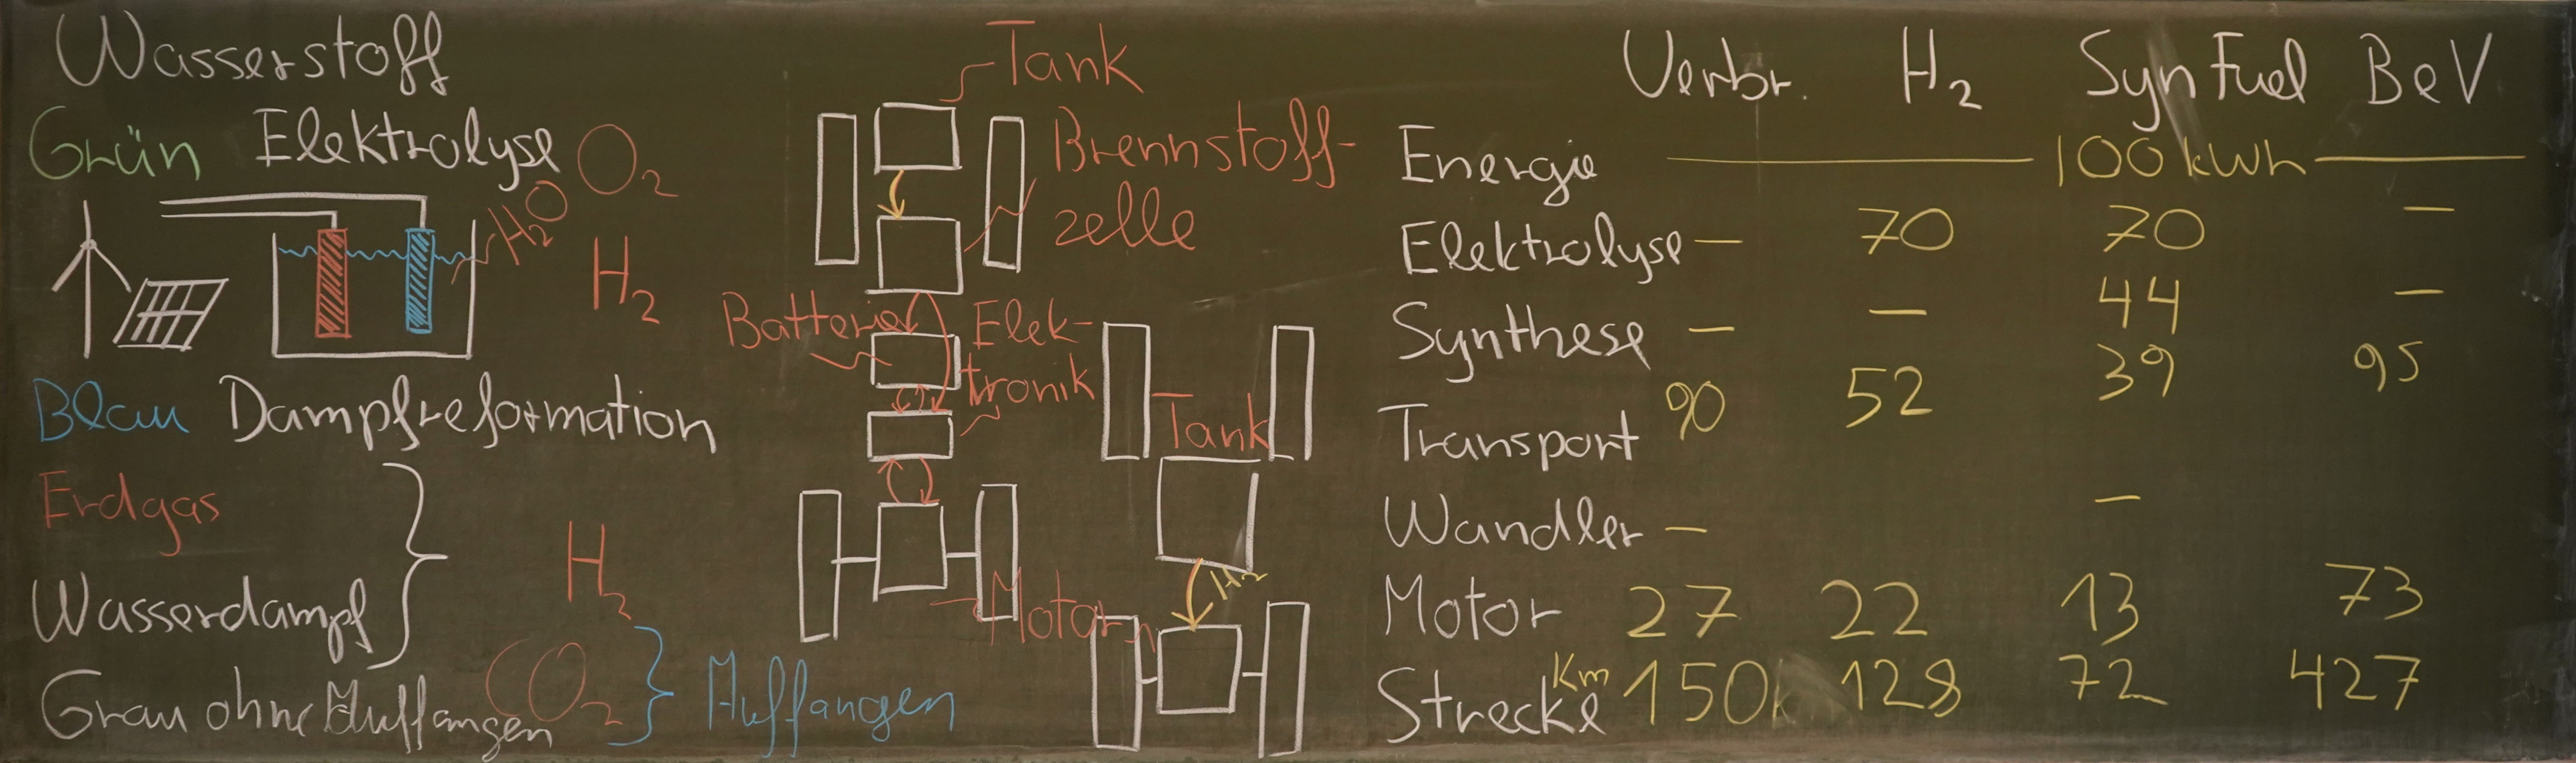 Wasserstoff
Grün Elektrolyse O2
H2O
H2
Blau Dampfreformation
Erdgas
Wasserdampf
H2
CO2 } Auffangen
Grau ohne Auffangen
Tank
Brennstoff-
zelle
Batterie
Elek-
tronik
Motor
Tank
H2
Verbr. H2 SynFuel BeV
Energie 100 kWh
Elektrolyse — 70 70 —
Synthese — — 44 —
Transport 90 52 39 95
Wandler — —
Motor 27 22 13 73
Strecke Km 150 128 72 427